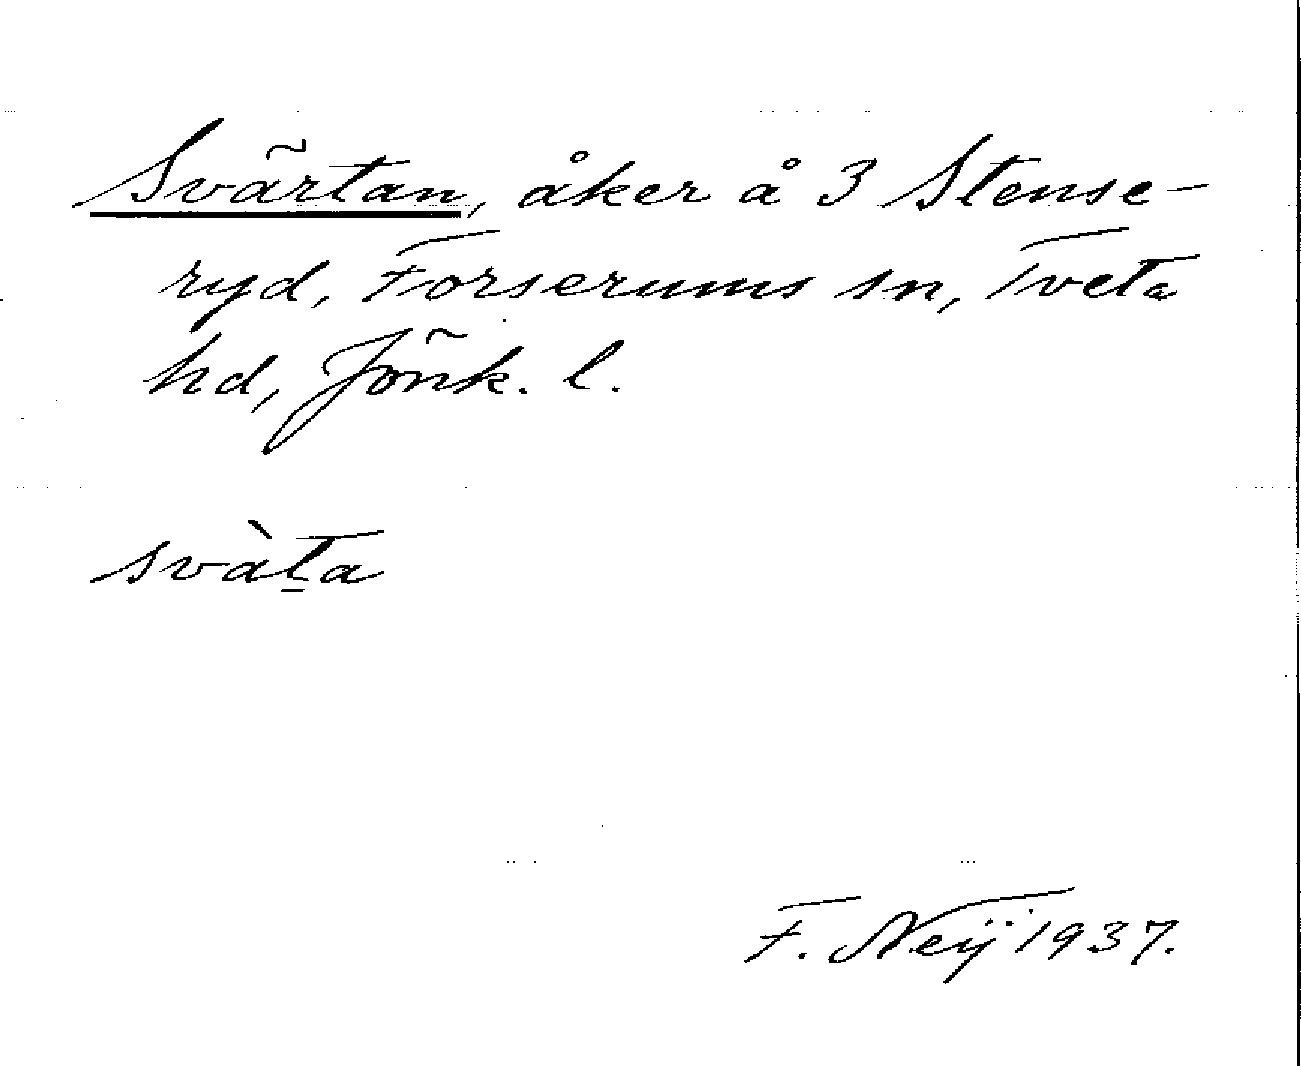 Svärtan, åker å 3 Stense-
ryd, Forserums sn, Tveta
hd, Jönk. l.
svàṯa
F. Neÿ 1937.